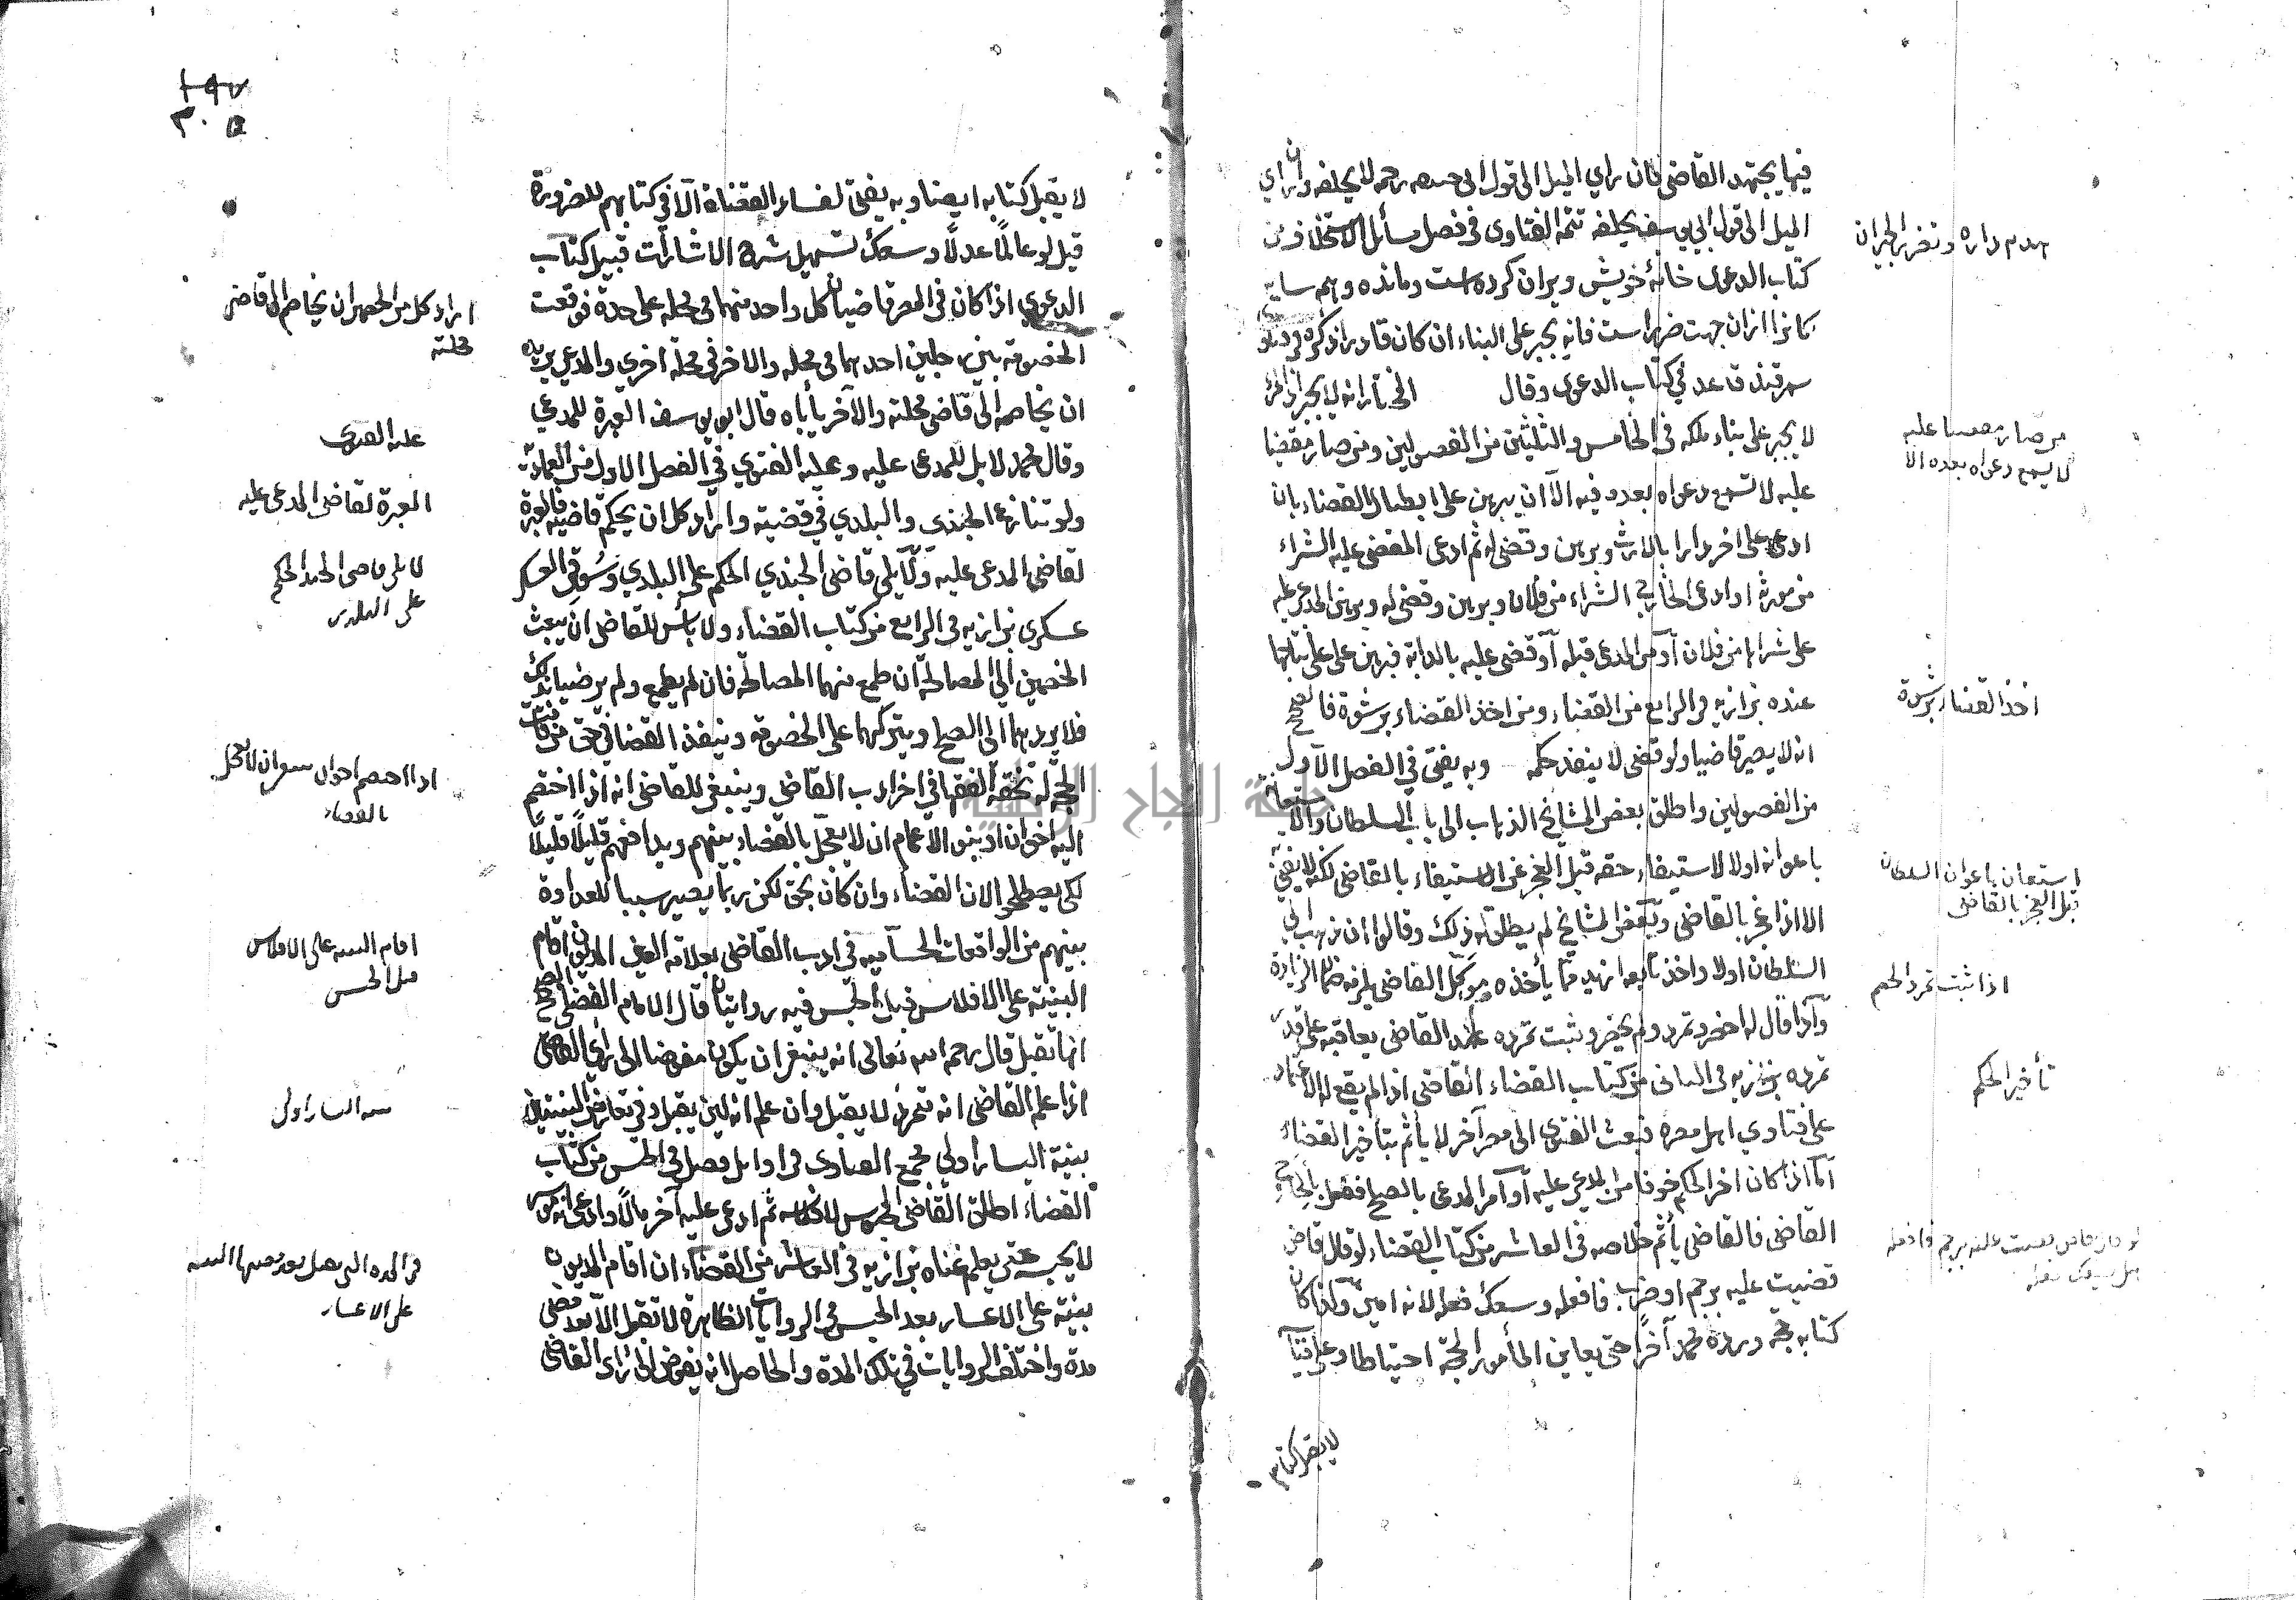 فيها يجتهد القاضي فان راي الميل الى قول ابى حنيفه رحمه لا يحلفه وان راي
الميل الى قول ابي يوسف يحلفه تتمة الفتاوى في فصل مسائل الاستحلاف من
كتاب الدعوى خانۀ خويش ويران كرده است ومانده وهم سايه
كانرا ازان جهت ضرر است فانه يجبر على البناء ان كان قادرا ذكره في فتاوى
سمرقند قاعد في كتاب الدعوى وقال المختار انه لا يجبر اذ المرء
لا يجبر على بناء ملكه في الخامس والثلثين من الفصولين ومن صار مقضيا
عليه لا تسمع دعواه بعده فيه الا ان يبرهن على ابطال القضاء بان
ادعى على اخر دارا بالارث وبرهن وقضى له ثم ادعى المقضى عليه الشراء
من مورثه او ادعى الخارج الشراء من فلان وبرهن وقضى له وبرهن المدعى عليه
على شرائها من فلان او من المدعى قبله او قضى عليه بالدابة فبرهن على نتاجها
عنده بزازيه في الرابع من القضاء ومن اخذ القضاء برشوة فالصحيح
انه لا يصير قاضيا ولو قضى لا ينفذ حكمه وبه يفتى في الفصل الاول
من الفصولين واطلق بعض المشايخ الذهاب الى باب السلطان والاستعانة
باعوانه اولا لاستيفاء حقه قبل العجز عن الاستيفاء بالقاضي لكنه لا يفتى به
الا اذا عجز بالقاضي وبعض المشايخ لم يطلق له ذلك وقالوا ان ذهب الى
السلطان اولا واخذ تابعه ازيد مما يأخذه موكل القاضي يلزمه ضمان الزيادة
واذا قال له احضر وتمرد ولم يحضر وثبت تمرده عند القاضي يعاقبه على قدر
تمرده بزازيه في الثانى من كتاب القضاء القاضي اذا لم يقع له الاعتماد
على فتاوي اهل مصره فبعث الفتوى الى مصر آخر لا يأثم بتأخير القضاء
اما اذا كان اخر الحكم خوفا من المدعى عليه او امر المدعى بالصلح ففعل بالحاح
القاضي فالقاضي يأثم خلاصه في العاشر من كتاب القضاء لو قال قاض
قضيت عليه برجم او ضرب فافعله وسعك فعله لانه امين وكذا كان
كتابه حجه ورده محمد آخرا حتى يعاين المأمور الحجة احتياطا وعلى قياسه
لا يقبل كتابه
هدم داره وتضرر الجيران
من صار مقضيا عليه
لا يسمع دعواه بعده الا
اخذ القضاء برشوة
استعان باعوان السلطان
قبل العجز بالقاضي
اذا ثبت تمرد الخصم
تأخير الحكم
لو قال قاض قضيت عليه برجم فافعله
هل يسعك فعله
لا يقبل كتابه ايضا وبه يفتى لفساد القضاة الا في كتابهم للضرورة
قيل لو عالما عدلا وسعك تسهيل شرح الاشارات قبيل كتاب
الدعوي اذا كان في المصر قاضيان كل واحد منهما في محلة على حدة فوقعت
الخصومة بين رجلين احدهما في محلة والاخر في محلة اخري والمدعي يريد
ان يخاصمه الى قاضي محلته والآخر يأباه قال ابو يوسف العبرة للمدعي
وقال محمد لا بل للمدعى عليه وعليه الفتوي في الفصل الاول من العمادية
ولو تنازع الجندى والبلدي في قضيته واراد كل ان يحكم قاضيه فالعبرة
لقاضي المدعى عليه ولا يلي قاضي الجندي الحكم على البلدي وسوقي العسكر
عسكري بزازيه في الرابع من كتاب القضاء ولا بأس للقاضي ان يبعث
الخصمين الى المصالحة ان طمع منهما المصالحة فان لم يطمع ولم يرضيا بذلك
فلا يردهما الى الصلح ويتركهما على الخصومة وينفذ القضا في حق من قامت
الحجة له تحفة الفقها في اخر ادب القاضي وينبغي للقاضي انه اذا اختصم
اليه اخوان او بنو الاعمام ان لا يعجل بالقضاء بينهم ويدافعهم قليلا قليلا
لكي يصطلحوا لان القضاء وان كان بحق لكن ربما يصير سببا للعداوة
بينهم من الواقعات الحسامية في ادب القاضي بعلامة العين المديون اقام
البينة على الافلاس قبل الحبس فيه روايتان قال الامام الفضلي الصحيح
انها تقبل قال رحمه الله تعالى انه ينبغي ان يكون مفوضا الى رأي القاضي
اذا علم القاضي انه متمرد لا يقبل وان علم انه لين يقبل وفي تعارض البينتين
بينة اليسار اولي مجمع الفتاوى في اوايل فصل في الحبس من كتاب
القضاء اطلق القاضي المحبوس لافلاسه ثم ادعى عليه آخر مالا وادعى انه موسر
لا يحبسه حتى يعلم غناه بزازيه في العاشر من القضاء ان اقام المديون
بينة على الاعسار بعد الحبس في الروايات الظاهرة لا تقبل الا بعد مضي
مدة واختلف الروايات في تلك المدة والحاصل انه يفوض الى رأى القاضي
اراد كل من الخصمين ان يخاصم الى قاضي
محلته
عليه الفتوى
العبرة لقاضي المدعى عليه
لا يلي قاضي الجند الحكم
على البلدي
اذا اختصم اخوان ينبغي ان لا يعجل
بالقضاء
اقام البينة على الافلاس
قبل الحبس
بينة اليسار اولى
في المدة التي يقبل بعد مضيها البينة
على الاعسار
١٩٧